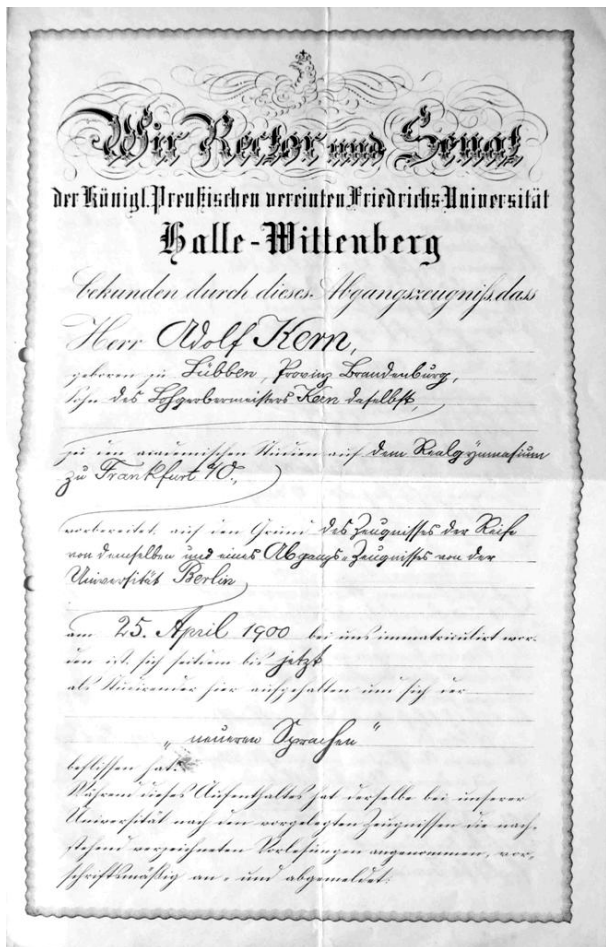 Wir Rector und Senat
der Königl. Preußischen vereinten Friedrichs-Universität
Halle-Wittenberg
bekunden durch dieses Abgangszeugniß, dass
Herr Adolf Kern,
geboren zu Lübben, Provinz Brandenburg,
Sohn des Lohgerbermeisters Kern daselbst,
zu den academischen Studien auf dem Realgymnasium
zu Frankfurt a/O.,
vorbereitet, auf den Grund des Zeugnisses der Reife
von demselben und eines Abgangs-Zeugnisses von der
Universität Berlin
am 25. April 1900 bei uns immatriculirt wor-
den ist, sich seitdem bis jetzt
als Studirender hier aufgehalten und sich der
„neueren Sprachen"
beflissen hat.
Während dieses Aufenthaltes hat derselbe bei unserer
Universität nach den vorgelegten Zeugnissen die nach-
stehend verzeichneten Vorlesungen angenommen, vor-
schriftsmäßig an- und abgemeldet: